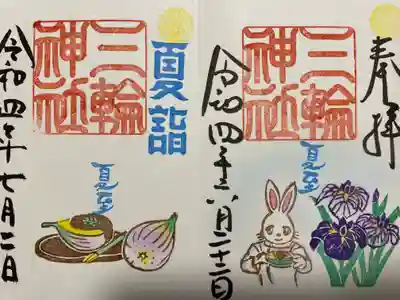 奉拝
三輪
神社
夏至
令和四年六月二十二日
夏詣
三輪
神社
令和四年七月二日